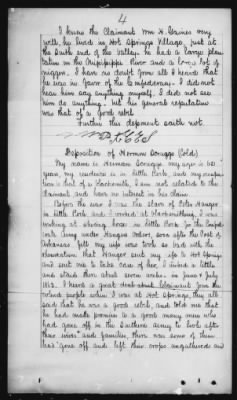 4
I knew the Claimant Wm H. Gaines very
well, he lived in Hot Springs Village, just at
the South end of the valley. he had a large plan-
tation on the Mississippi River and a large lot of
niggers. I have no doubt from all I heard that
he was in favor of the Confederacy. I did not
hear him say anything myself, I did not see
him do anything, but his general reputation
was that of a Good rebel.
Further this deponent saith not.
Deposition of Harmon (Cold)
My name is Harmon my age is 61
years, my residence is in Little Rock, and my occupa-
tion is that of a Blacksmith, I am not related to the
claimant and have no interest in his claim.
Before the war I was the slave of Peter Hanger
in Little Rock and I worked at Blacksmithing, I was
working at shoeing horses in Little Rock for the Confed-
erate Army under Hangers Orders, soon after the Post of
Arkansas fell my wife was took so bad with the
that Hanger sent my wife to Hot Springs
and sent me to take care of her, I hired a
and staid there about seven weeks in June & July
1863. I heard a great deal about Claimant from the
colored people when I was at Hot Springs, they all
said that he was a good rebel, and told me that
he had made promise to a good many men who
had gone off in the Southern army to look after
their wives and families, there was some of them
has gone off and left their crops ungathered and